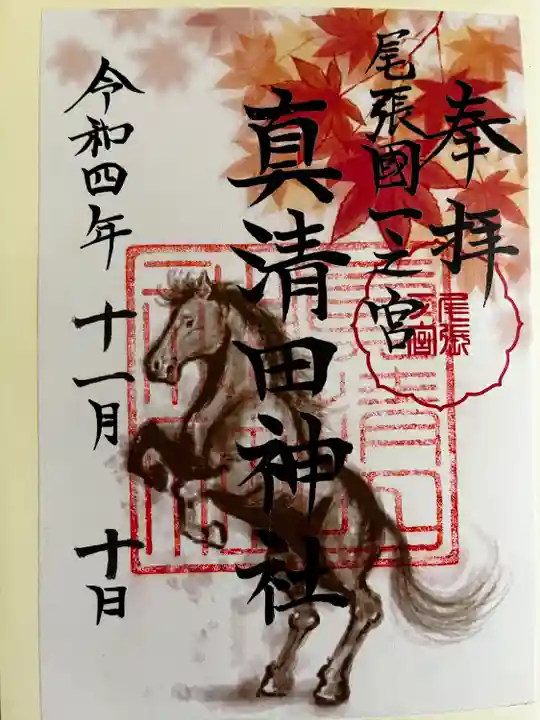 奉拝
尾張國一之宮
尾張
一宮
真清田神社
令和四年 十一月 十日